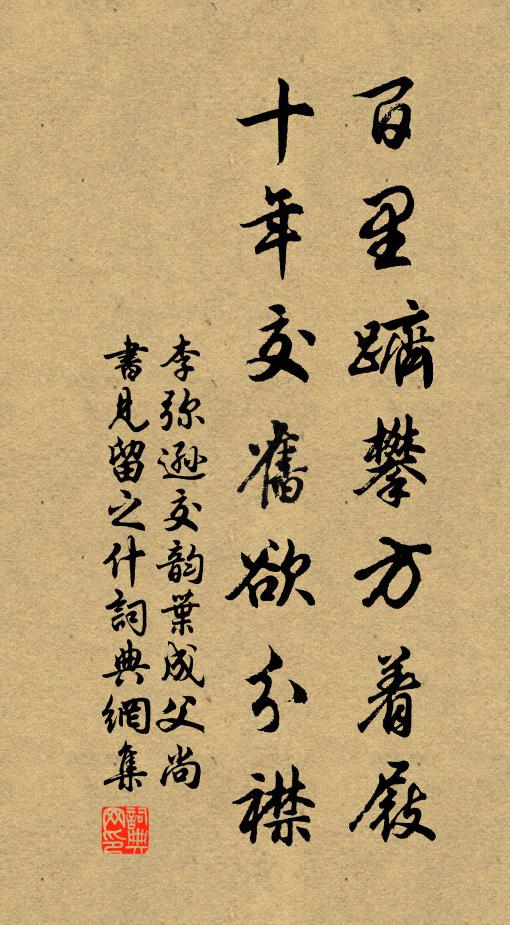 百里躋攀方着屐
十年交舊欲分襟
李弥遜交韵葉成父尚
書見留之什詞典網集
詞典
网印